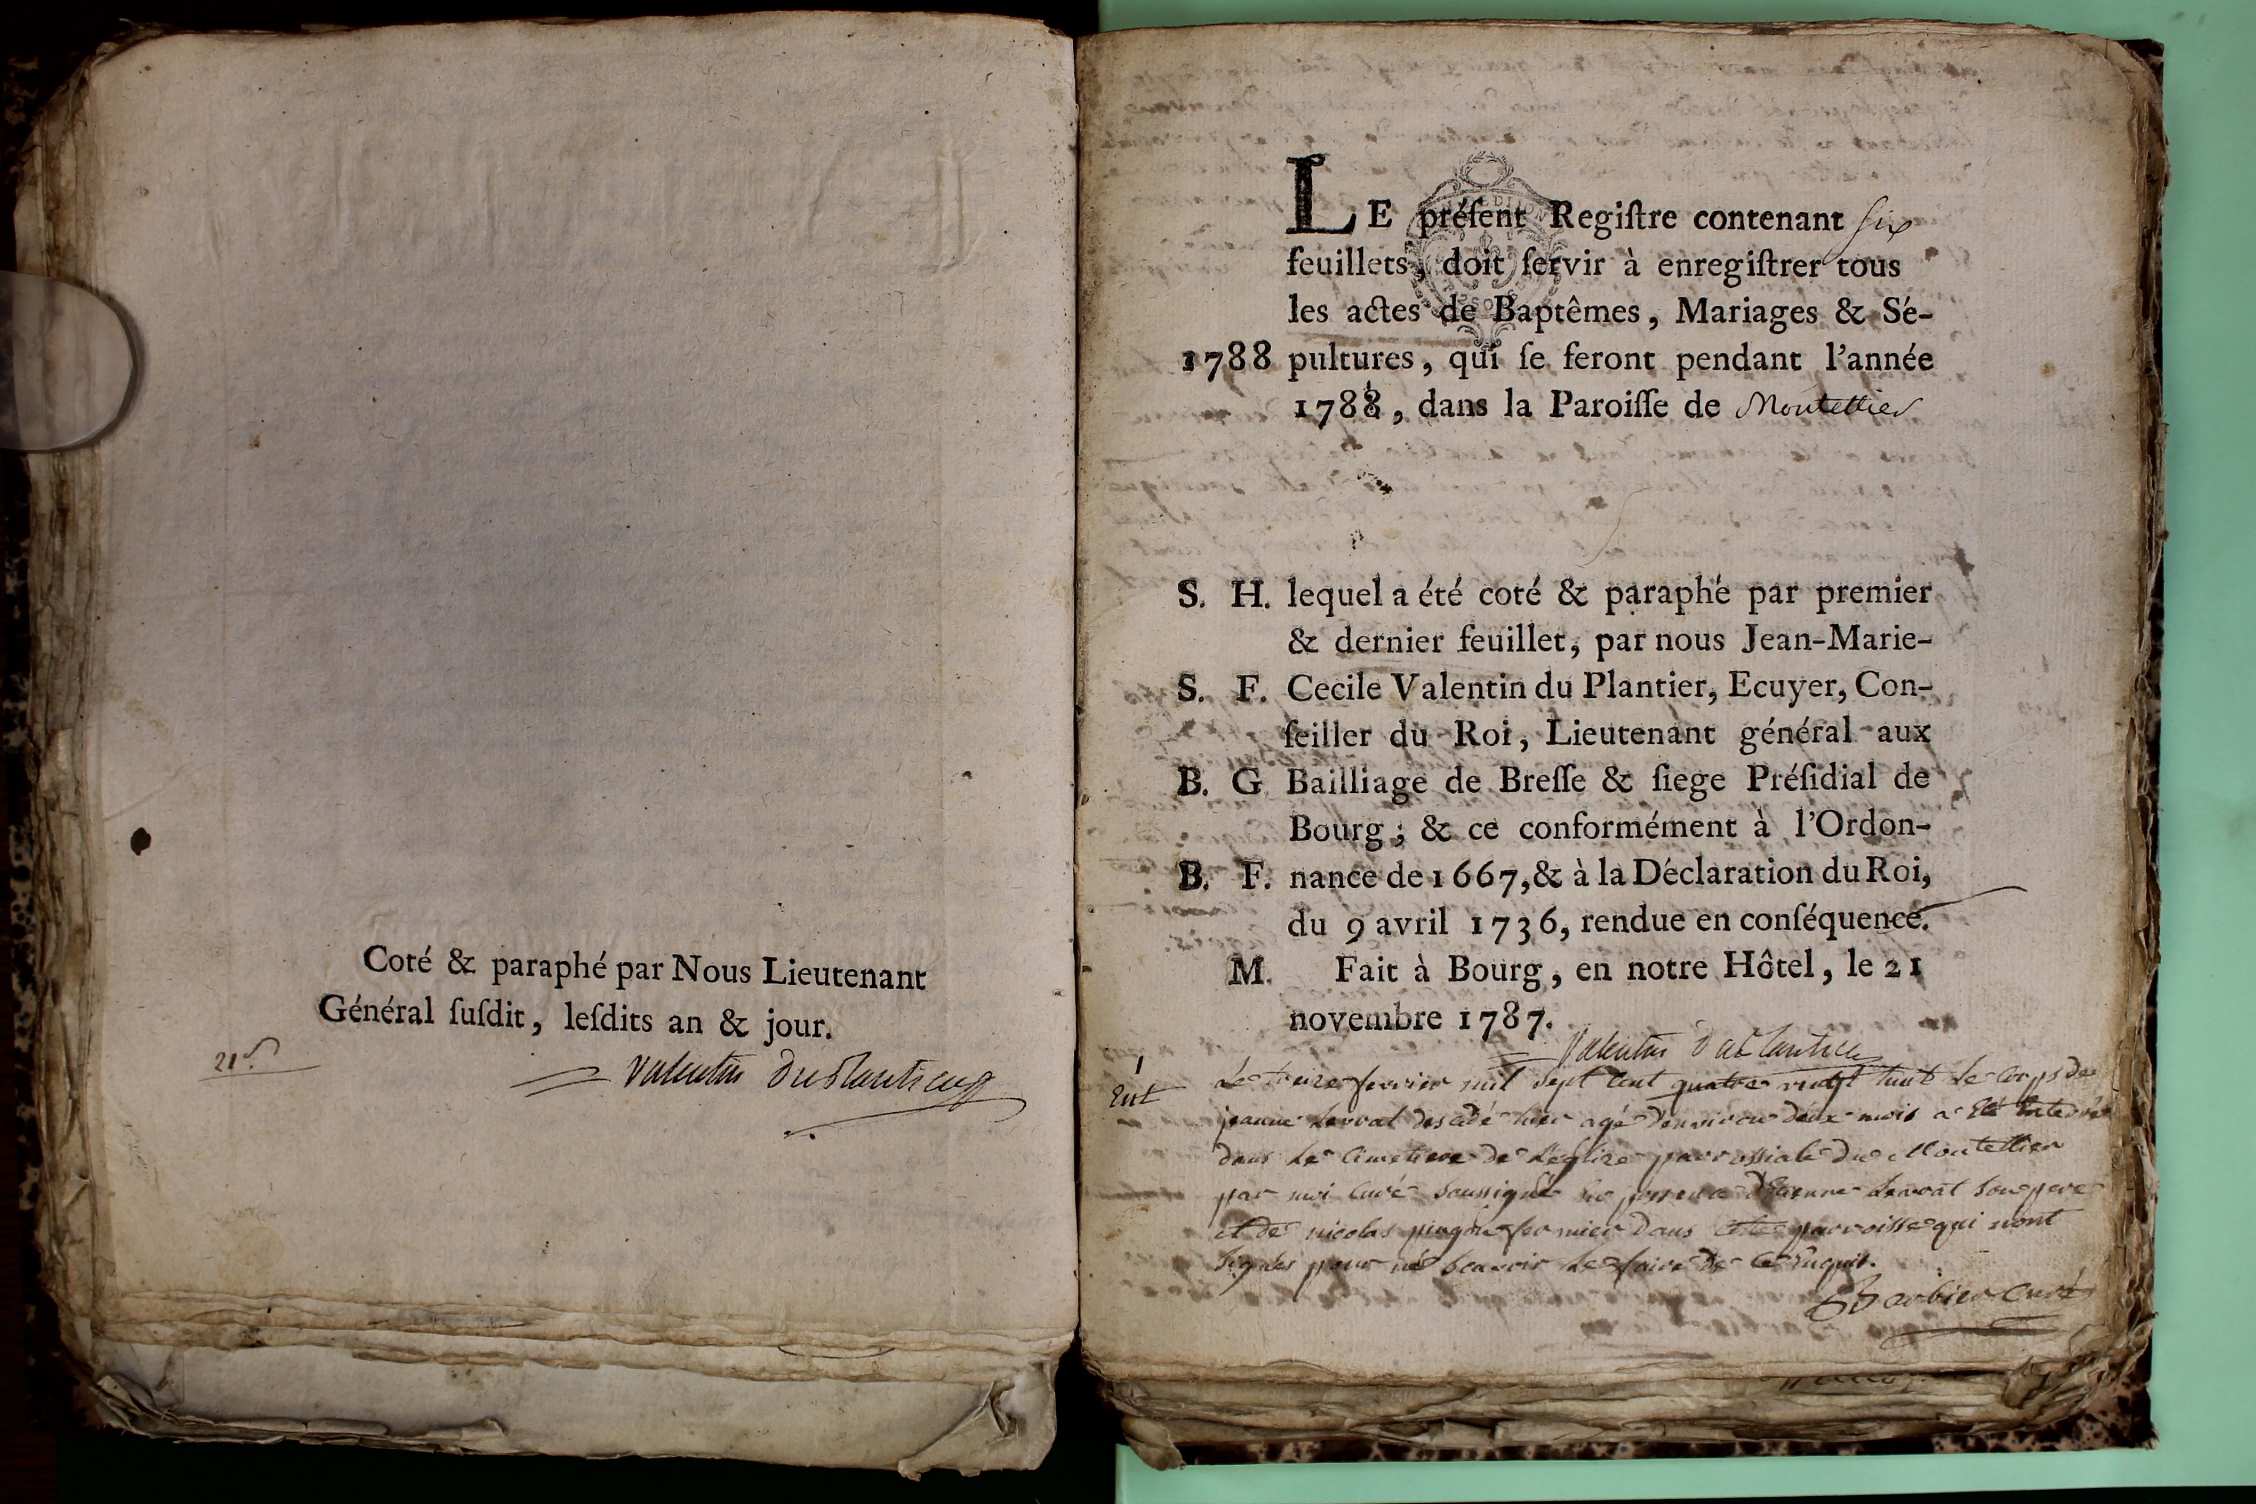 Coté & paraphé par Nous Lieutenant
Général ſuſdit, leſdits an & jour.
21
Valentin Duplantier
LE préſent Regiſtre contenant six
feuillets, doit ſervir à enregiſtrer tous
les actes de Baptêmes, Mariages & Sé-
1788 pultures, qui ſe feront pendant l'année
1788, dans la Paroiſſe de Montellier
S. H. lequel a été coté & paraphé par premier
& dernier feuillet, par nous Jean-Marie-
S. F. Cecile Valentin du Plantier, Ecuyer, Con-
ſeiller du Roi, Lieutenant général aux
B. G Bailliage de Breſſe & ſiege Préſidial de
Bourg; & ce conformément à l'Ordon-
B. F. nance de 1667, & à la Déclaration du Roi,
du 9 avril 1736, rendue en conſéquence.
M. Fait à Bourg, en notre Hôtel, le 21
novembre 1787.
Valentin Duplantier
1
Ent
Le treize fevrier mil sept cent quatre vingt huit le corps de
jeanne dervat descedé hier agé d'environ deux mois a été enterré
dans le cimetiere de l'eglize parrossiale du Montellier
par moi curé soussigné en presence d'Etienne dervat son pere
et de nicolas fermier dans cette parroisse qui n'ont
signés pour ne scavoir le faire de ce enquis.
Barbier curé